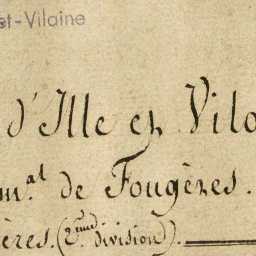 et-Vilaine
d'Ille et Vila
m.al de Fougères.
ères. (2.eme division).